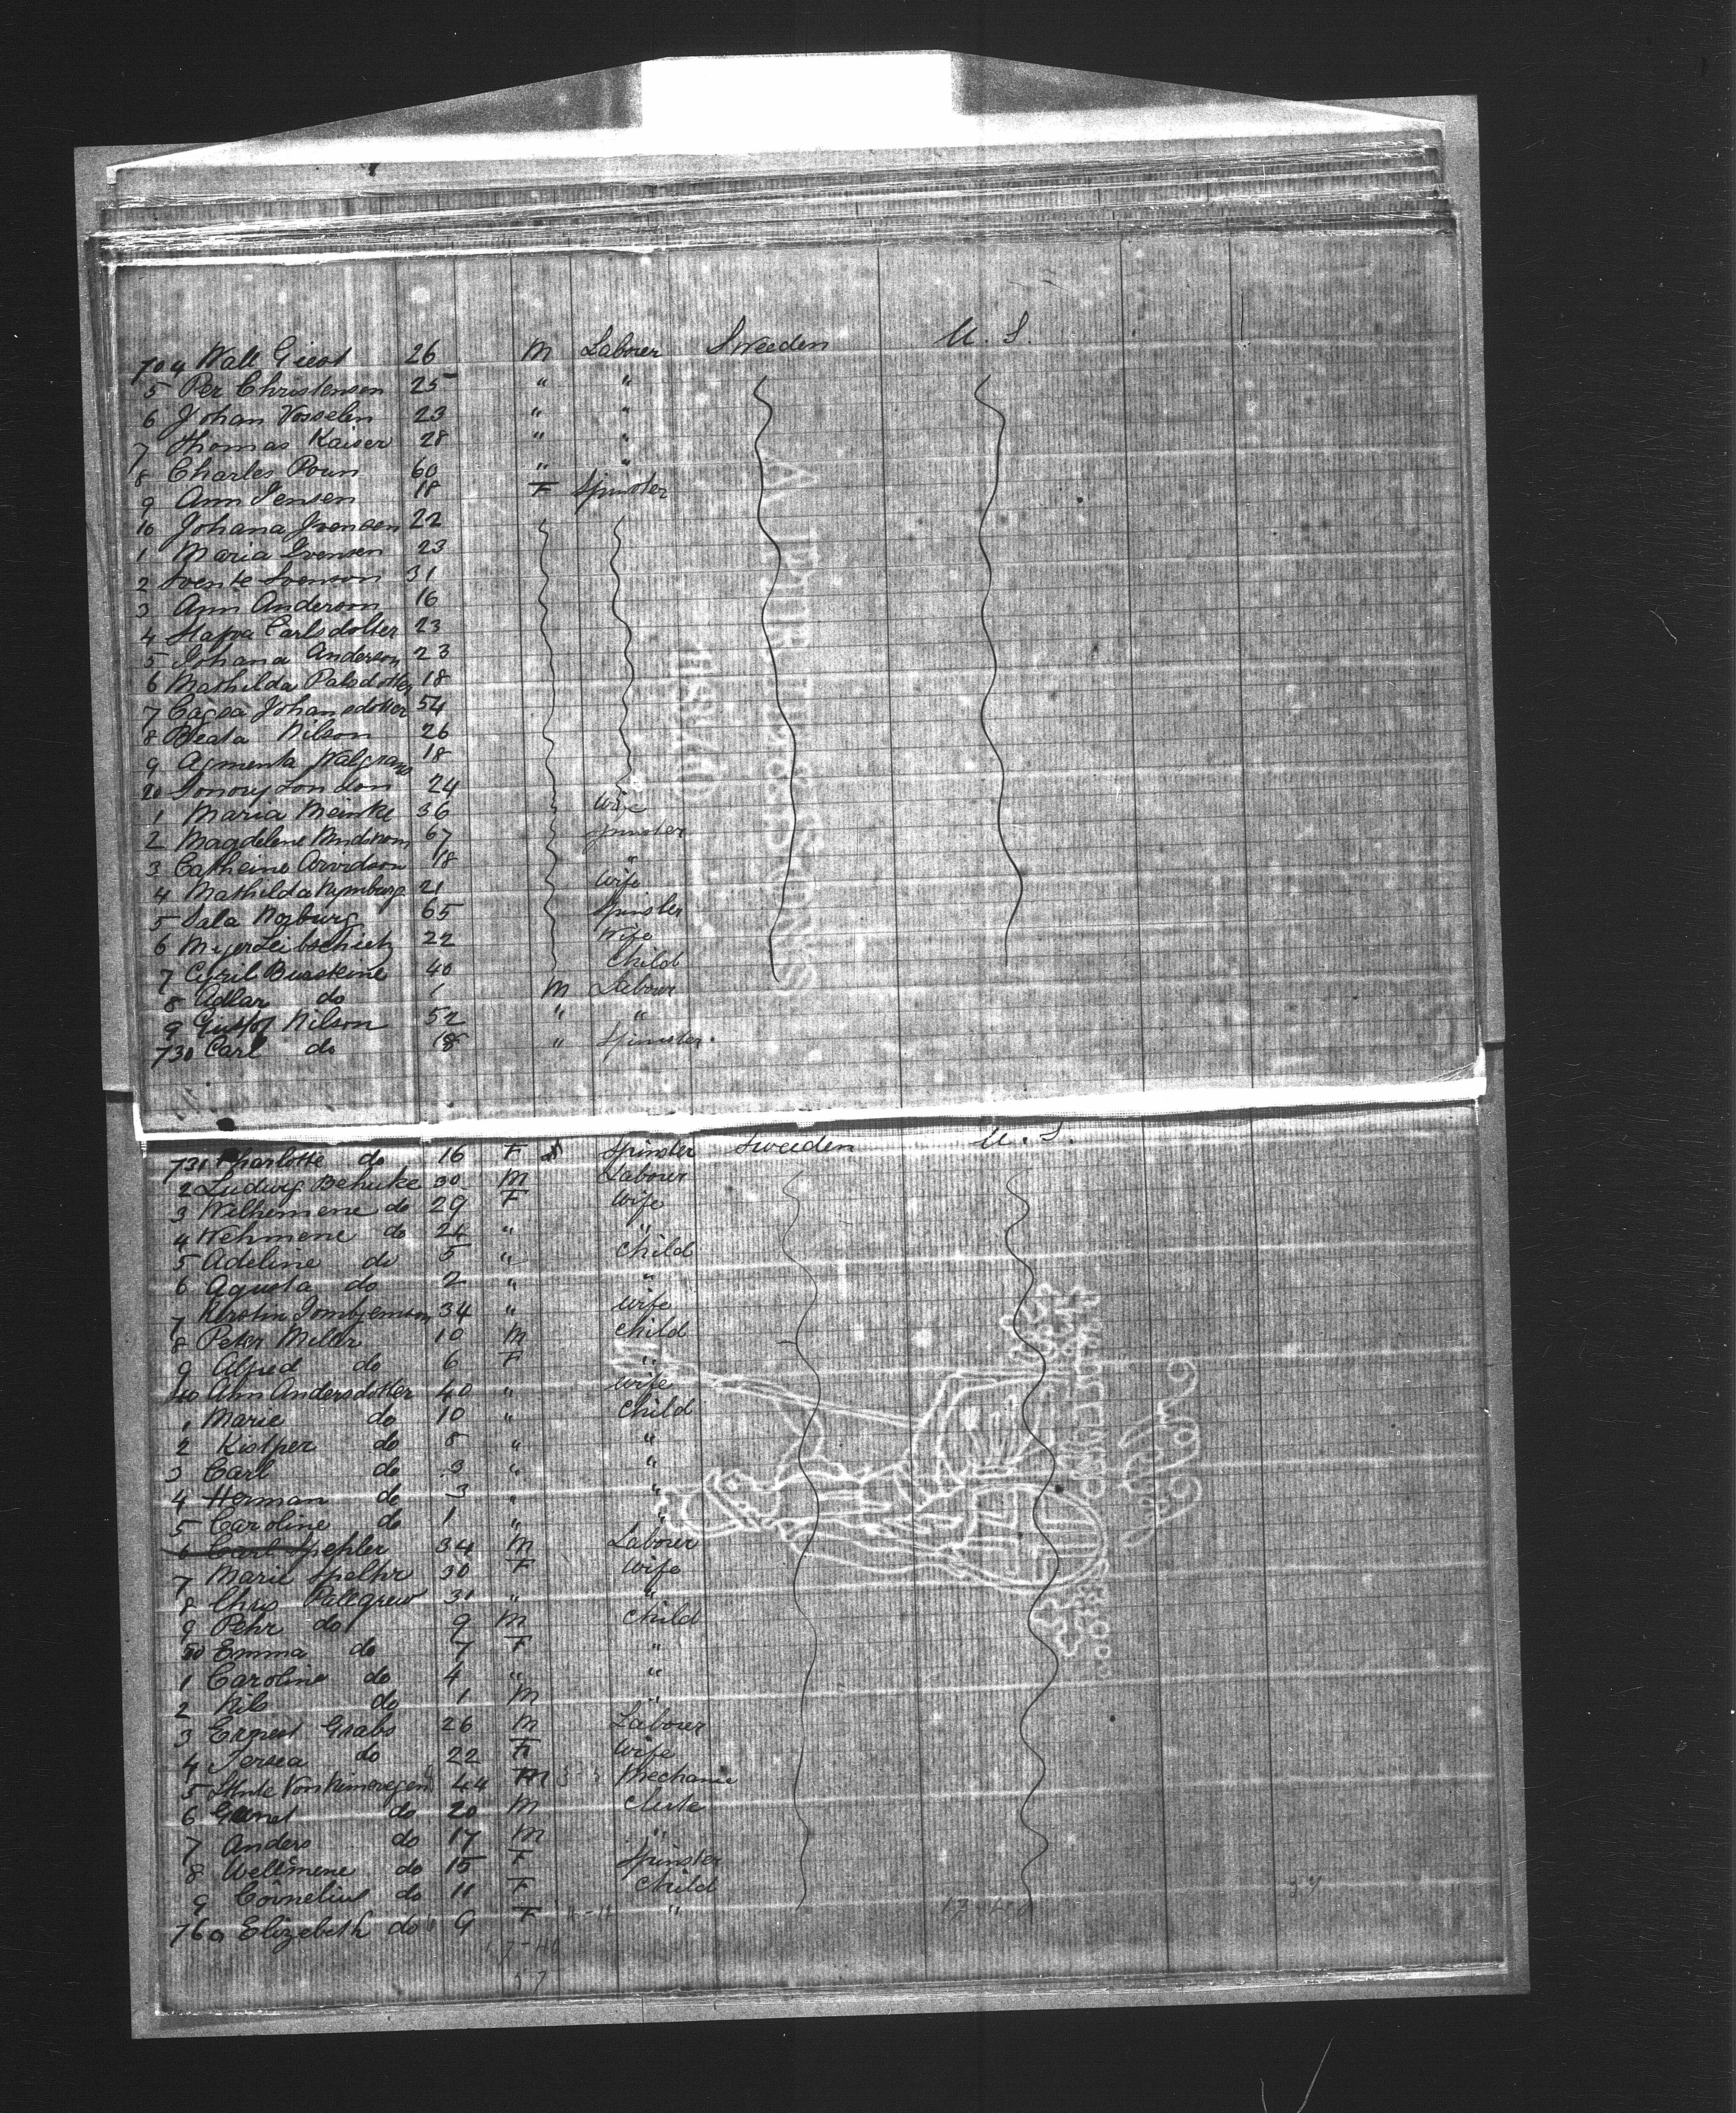 704 Wall Giest 26 M Labourer Sweeden U. S.
5 Per Christenson 25 " "
6 Johan Vosselen 23 " "
7 Thomas Kaiser 28 " "
8 Charles Poun 60 " "
9 Ann Jensen 18 F Spinster
10 Johana Ivensen 22
1 Maria Ivensen 23
2 Svente Svenson 31
3 Ann Anderson 16
4 Carlsdotter 23
5 Johana Anderson 23
6 Mathilda Palsdotter 18
7 Cajsa Johansdotter 54
8 Beata Nilson 26
9 Agmenta Walgrano 18
20 London 24
1 Maria Meinke 36 Wife
2 Magdelene 67 Spinster
3 Catheine Arvidson 18 "
4 Mathilda Nymburg 21 Wife
5 Sala Norburg 65 Spinster
6 Myer Leibschietz 22 Wife
7 Cyril Bursteine 40 Child
8 Adlar do 1 M Labour
9 Gustof Nilson 52 " "
730 Carl do 18 " Spinster.
731 Charlotte do 16 F Spinster Sweeden U. S.
2 Ludwig Behuke 30 M Labourer
3 Wilhemene do 29 F Wife
4 Wehmene do 24 " "
5 Adeline do 5 " Child
6 Agusta do 2 " "
7 Kerstin 34 " Wife
8 Peter Miller 10 M Child
9 Alfred do 6 F "
40 Ann Andersdotter 40 " Wife
1 Marie do 10 " Child
2 Kistper do 8 " "
3 Carl do 3 " "
4 Herman do 3 " "
5 Caroline do 1 " "
6 Carl Spehler 34 M Labourer
7 Marie Spelhr 30 F Wife
8 Chrs Pallgrew 31 " "
9 Pehr do 9 M Child
50 Emma do 7 F "
1 Caroline do 4 " "
2 Nils do 1 M "
3 Ernest Grabs 26 M Labourer
4 Tersea do 22 F Wife
5 44 M Mechanic
6 do 20 M Clerk
7 Anders do 17 M "
8 Wellmene do 15 F Spinster
9 Cornelius do 11 F Child
760 Elizebeth do 9 F "
17-40
57